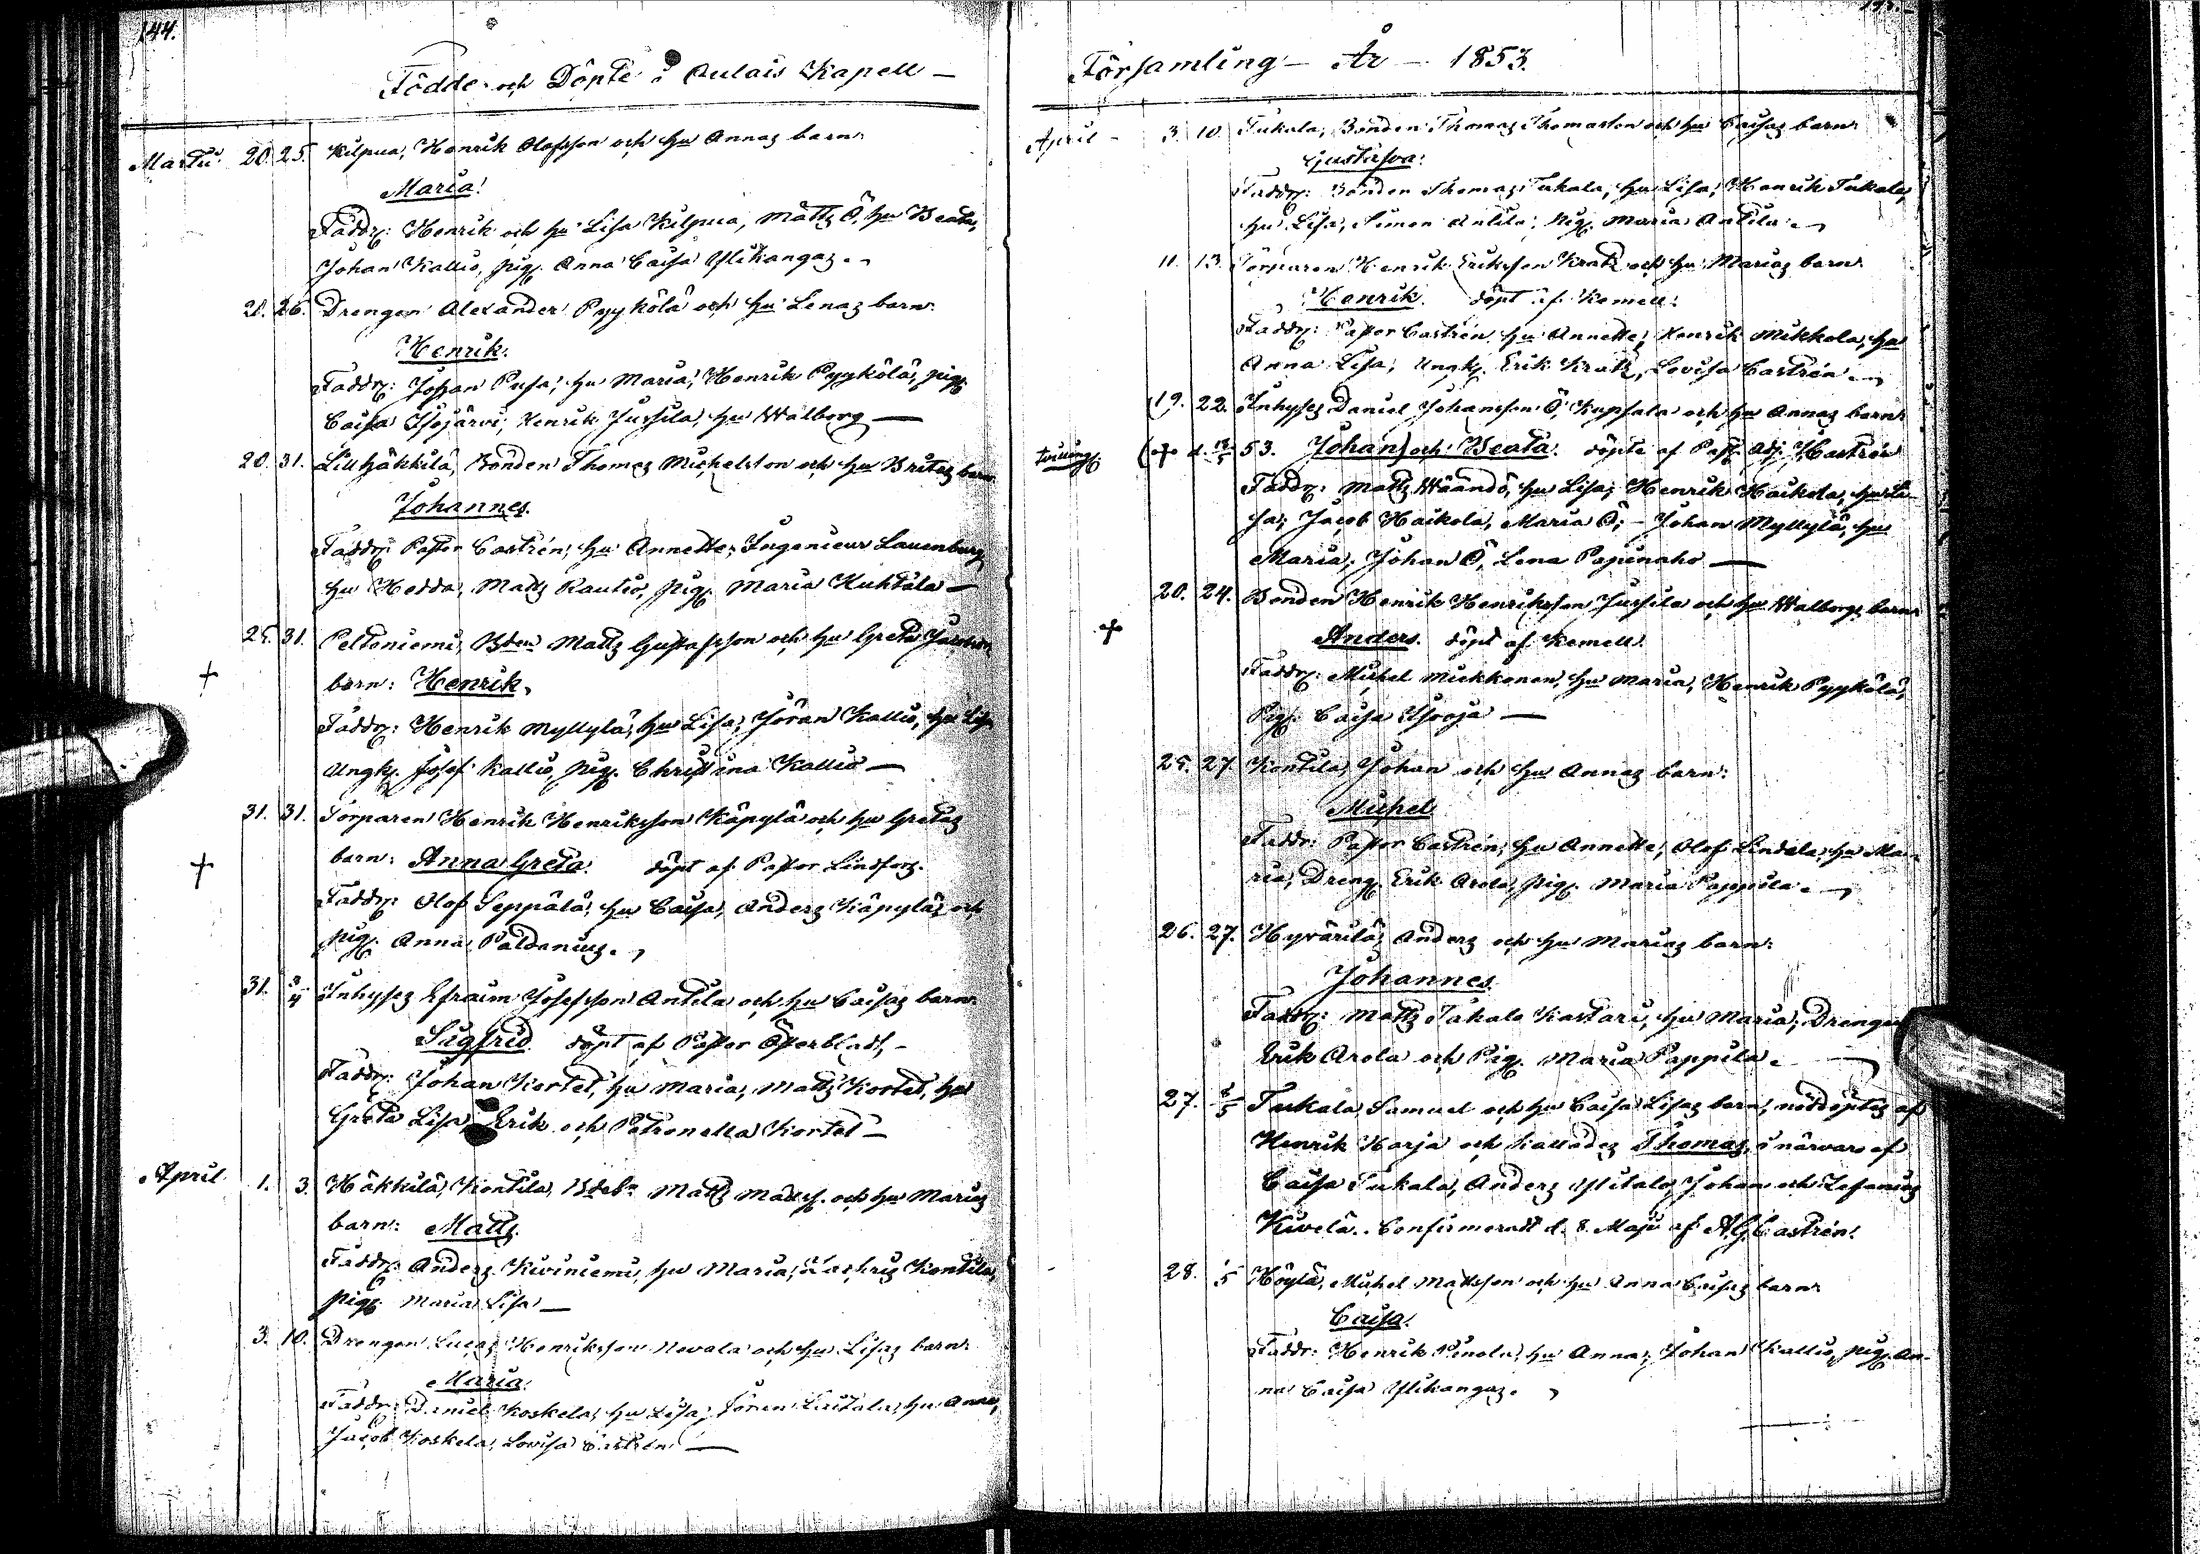 144.
Födde och Döpte i Pulais Kapell —
Martii 20. 25. Kilpua, Henrik Olofsson och hu Annas barn:
Maria.
Faddr: Henrik och hu Lisa Kilpua, Matts Ö, hu Beata,
Johan Kallio, pig. Anna Caisa Ylikangas.
20. 26. Drengen Alexander Pyykölä och hu Lenas barn:
Henrik.
Faddr: Johan Pusa, hu Maria, Henrik Pyykölä, pig.
Caisa Isojärvi, Henrik Jussila, hu Walborg —
20. 31. Lillhäkkilä, Bonden Thomas Michelsson och hu Britas barn
Johannes.
Faddr: Pastor Castrén, hu Annette, Ingenieur Lauenburg
hu Hedda, Matts Rautio, pig. Maria Kuhtala —
25. 31. Peltoniemi, Bden Matts Gustafsson och hu Greta
+ barn: Henrik.
Faddr: Henrik Myllylä, hu Lisa, Jöran Kallio, hu Lisa
Ungk. Josef Kallio, pig. Christina Kallio —
31. 31. Torparen Henrik Henriksson Käpylä och hu Gretas
+ barn: Anna Greta. döpt af Pastor Lindfors.
Faddr: Olof Seppälä, hu Caisa, Anders Käpylä, och
pig. Anna Paldanius.
31. 3/4 Inhyses Efraim Josefsson Antila och hu Caisas barn
Sigfrid döpt af Pastor Österbladh, —
Faddr: Johan Kortet, hu Maria, Matts Kortet, hu
Greta Lisa, Erik och Petronella Kortet —
April 1. 3. Häkkilä, Kontila, Matts Mattss. och hu Marias
barn: Matts.
Faddr: Anders Kiviniemi, hu Maria, Zachris Kontila,
pig. Maria Lisa —
3. 10. Drengen Lucas Henriksson Nevala och hu Lisas barn:
Maria.
Faddr: Daniel Koskela, hu Lisa, Jöran Laitala, hu Anna,
Jacob Koskela, Lovisa Castrén —
Församling — År — 1853.
April — 3. 10. Tukala, Bonden Thomas Thomasson och hu Caisas barn:
Gustafva.
Faddr: Bonden Thomas Tukala, hu Lisa, Henrik Tukala,
hu Lisa, Simon Antila, Pig. Maria Antila.
11. 13. Torparen Henrik Eriksson Kratz och hu Marias barn
Henrik. döpt af Kemell.
Faddr: Pastor Castrén, hu Annette, Henrik Mikkola, hu
Anna Lisa, Ungk. Erik Kratz, Lovisa Castrén.
19. 22. Inhyses Daniel Johansson Ö, Kupsala och hu Annas barn
53. Johan och Beata. döpte af Past. Adj. Hastrén
Faddr: Matts Wäändö, hu Lisa, Henrik Haikola, hu Li-
sa, Jacob Haikola, Maria Ö, — Johan Myllylä, hu
Maria, Johan Ö, Lena Papinaho —
20. 24. Bonden Henrik Henriksson Jussila och hu Walborgs barn
+ Anders. döpt af Kemell.
Faddr: Michel Miekkonen, hu Maria, Henrik Pyykölä,
Pig. Caisa
25. 27. Kontila, Johan och hu Annas barn:
Michel
Faddr: Pastor Castrén, hu Annette, Olof Lindela, hu Ma-
ria, Dreng. Erik Arola, pig. Maria Pappila.
26. 27. Hyvärilä, Anders och hu Marias barn:
Johannes.
Faddr: Matts Takalo Kastari, hu Maria, Drengen
Erik Arola och Pig. Maria Pappila.
27. Tukala Samuel och hu Caisa Lisas barn, nöddöptes af
Henrik Harja och kallades Thomas, i närvaro af
Caisa Tukala, Anders Ylitalo, Johan och
Kivelä. Confirmeradt d. 8 Maji af A.G. Castrén.
28. 1/5 Höylä, Michel Mattsson och hu Anna Caisas barn:
Caisa.
Faddr: Henrik Pinola, hu Anna, Johan Kallio, pig. An-
na Caisa Ylikangas.